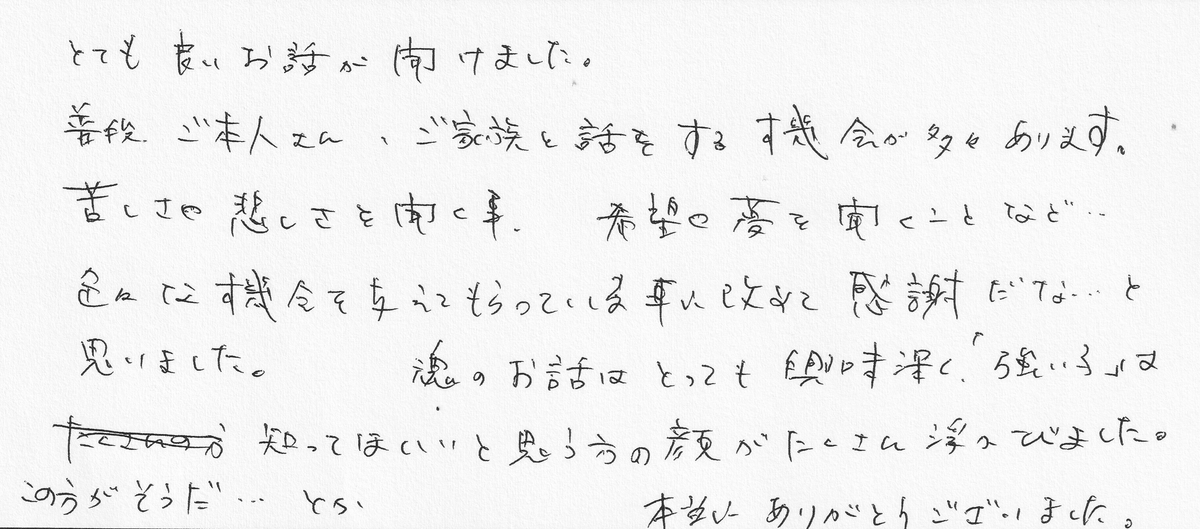 とても良いお話が聞けました。
普段、ご本人さん、ご家族と話をする機会が多々あります。
苦しさや悲しさを聞く事、希望や夢を聞くことなど…
色々な機会を与えてもらっている事に改めて感謝だな…と
思いました。 魂のお話はとっても興味深く、「強い子」は
知ってほしいと思う方の顔がたくさん浮かびました。
この方がそうだ…とか 本当にありがとうございました。